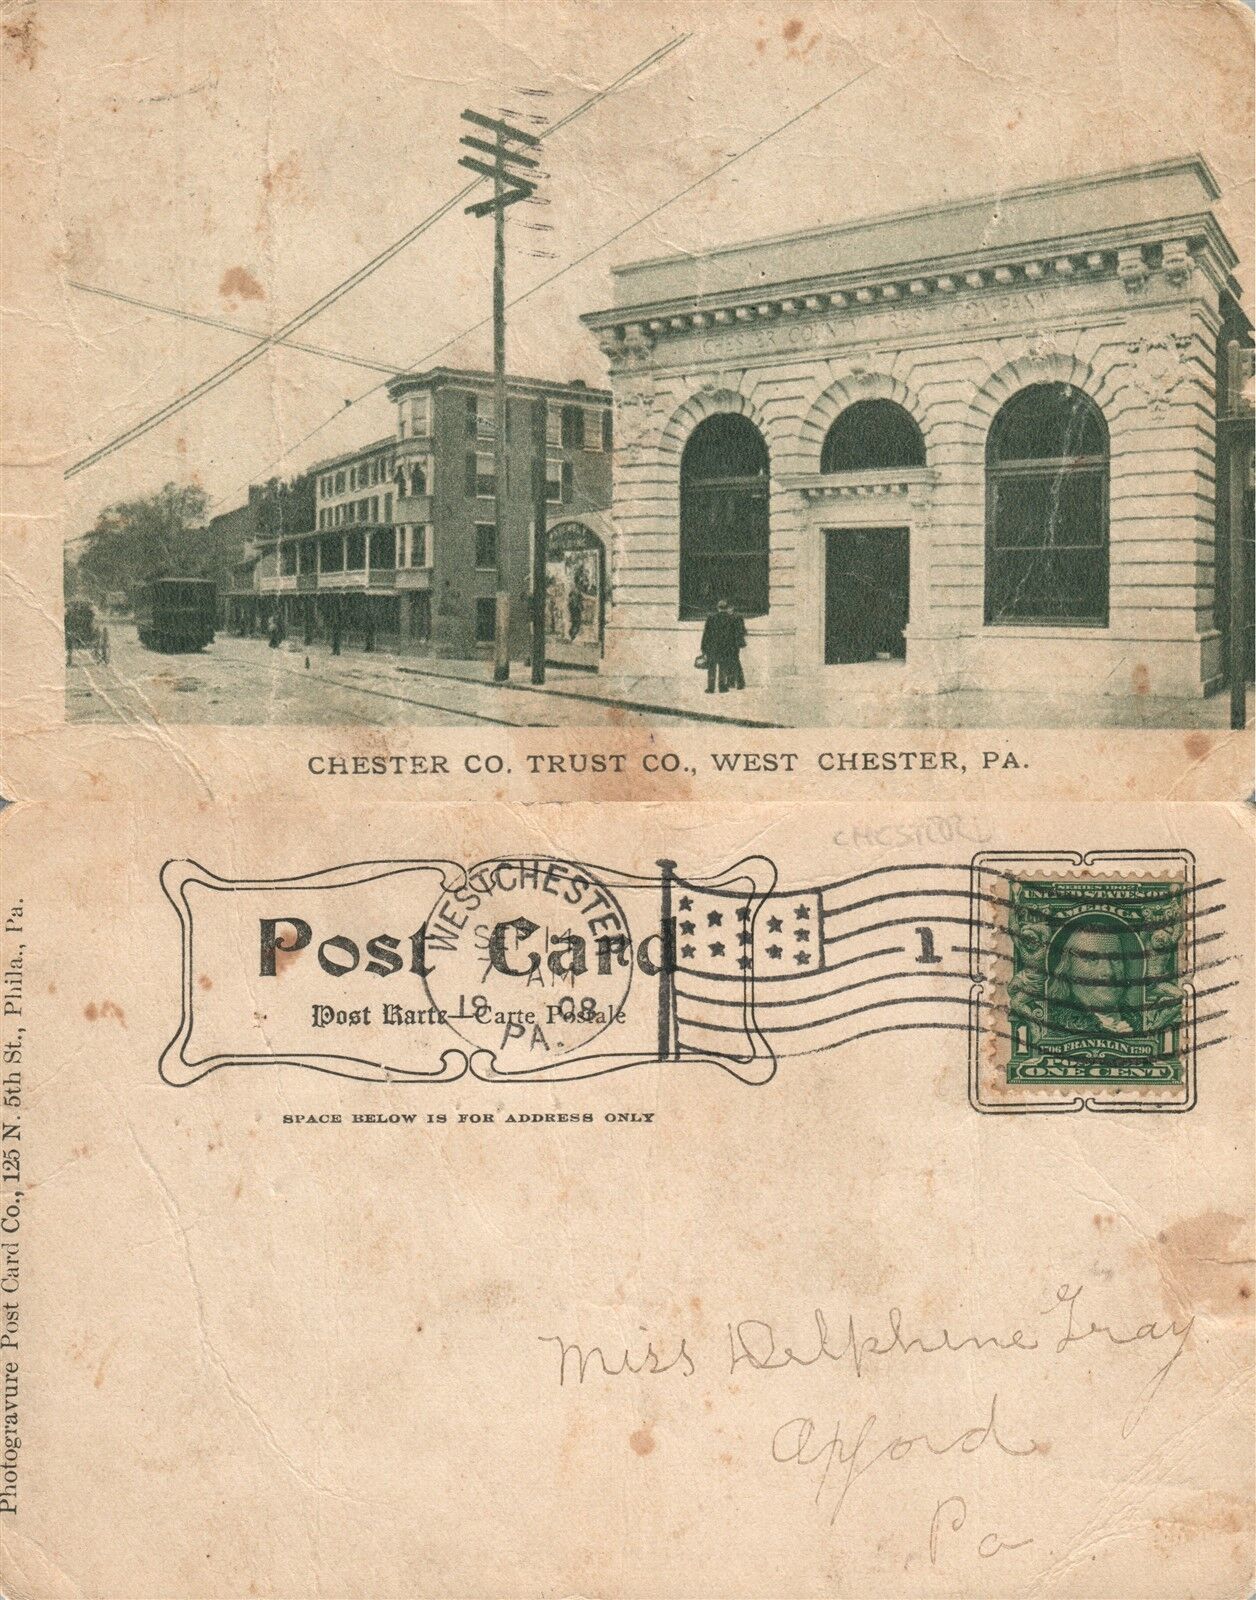 CHESTER COUNTY TRUST COMPANY
CHESTER CO. TRUST CO., WEST CHESTER, PA.
CHESTER
Post Card
Post Karte—Carte Postale
WEST CHESTER
SEP 14
7 AM
19 08
PA.
1
SERIES 1902
UNITED STATES OF
AMERICA
1 1706 FRANKLIN 1790 1
POSTAGE
ONE CENT
SPACE BELOW IS FOR ADDRESS ONLY
Photogravure Post Card Co., 125 N. 5th St., Phila., Pa.
Miss Delphine Gray
Oxford
Pa